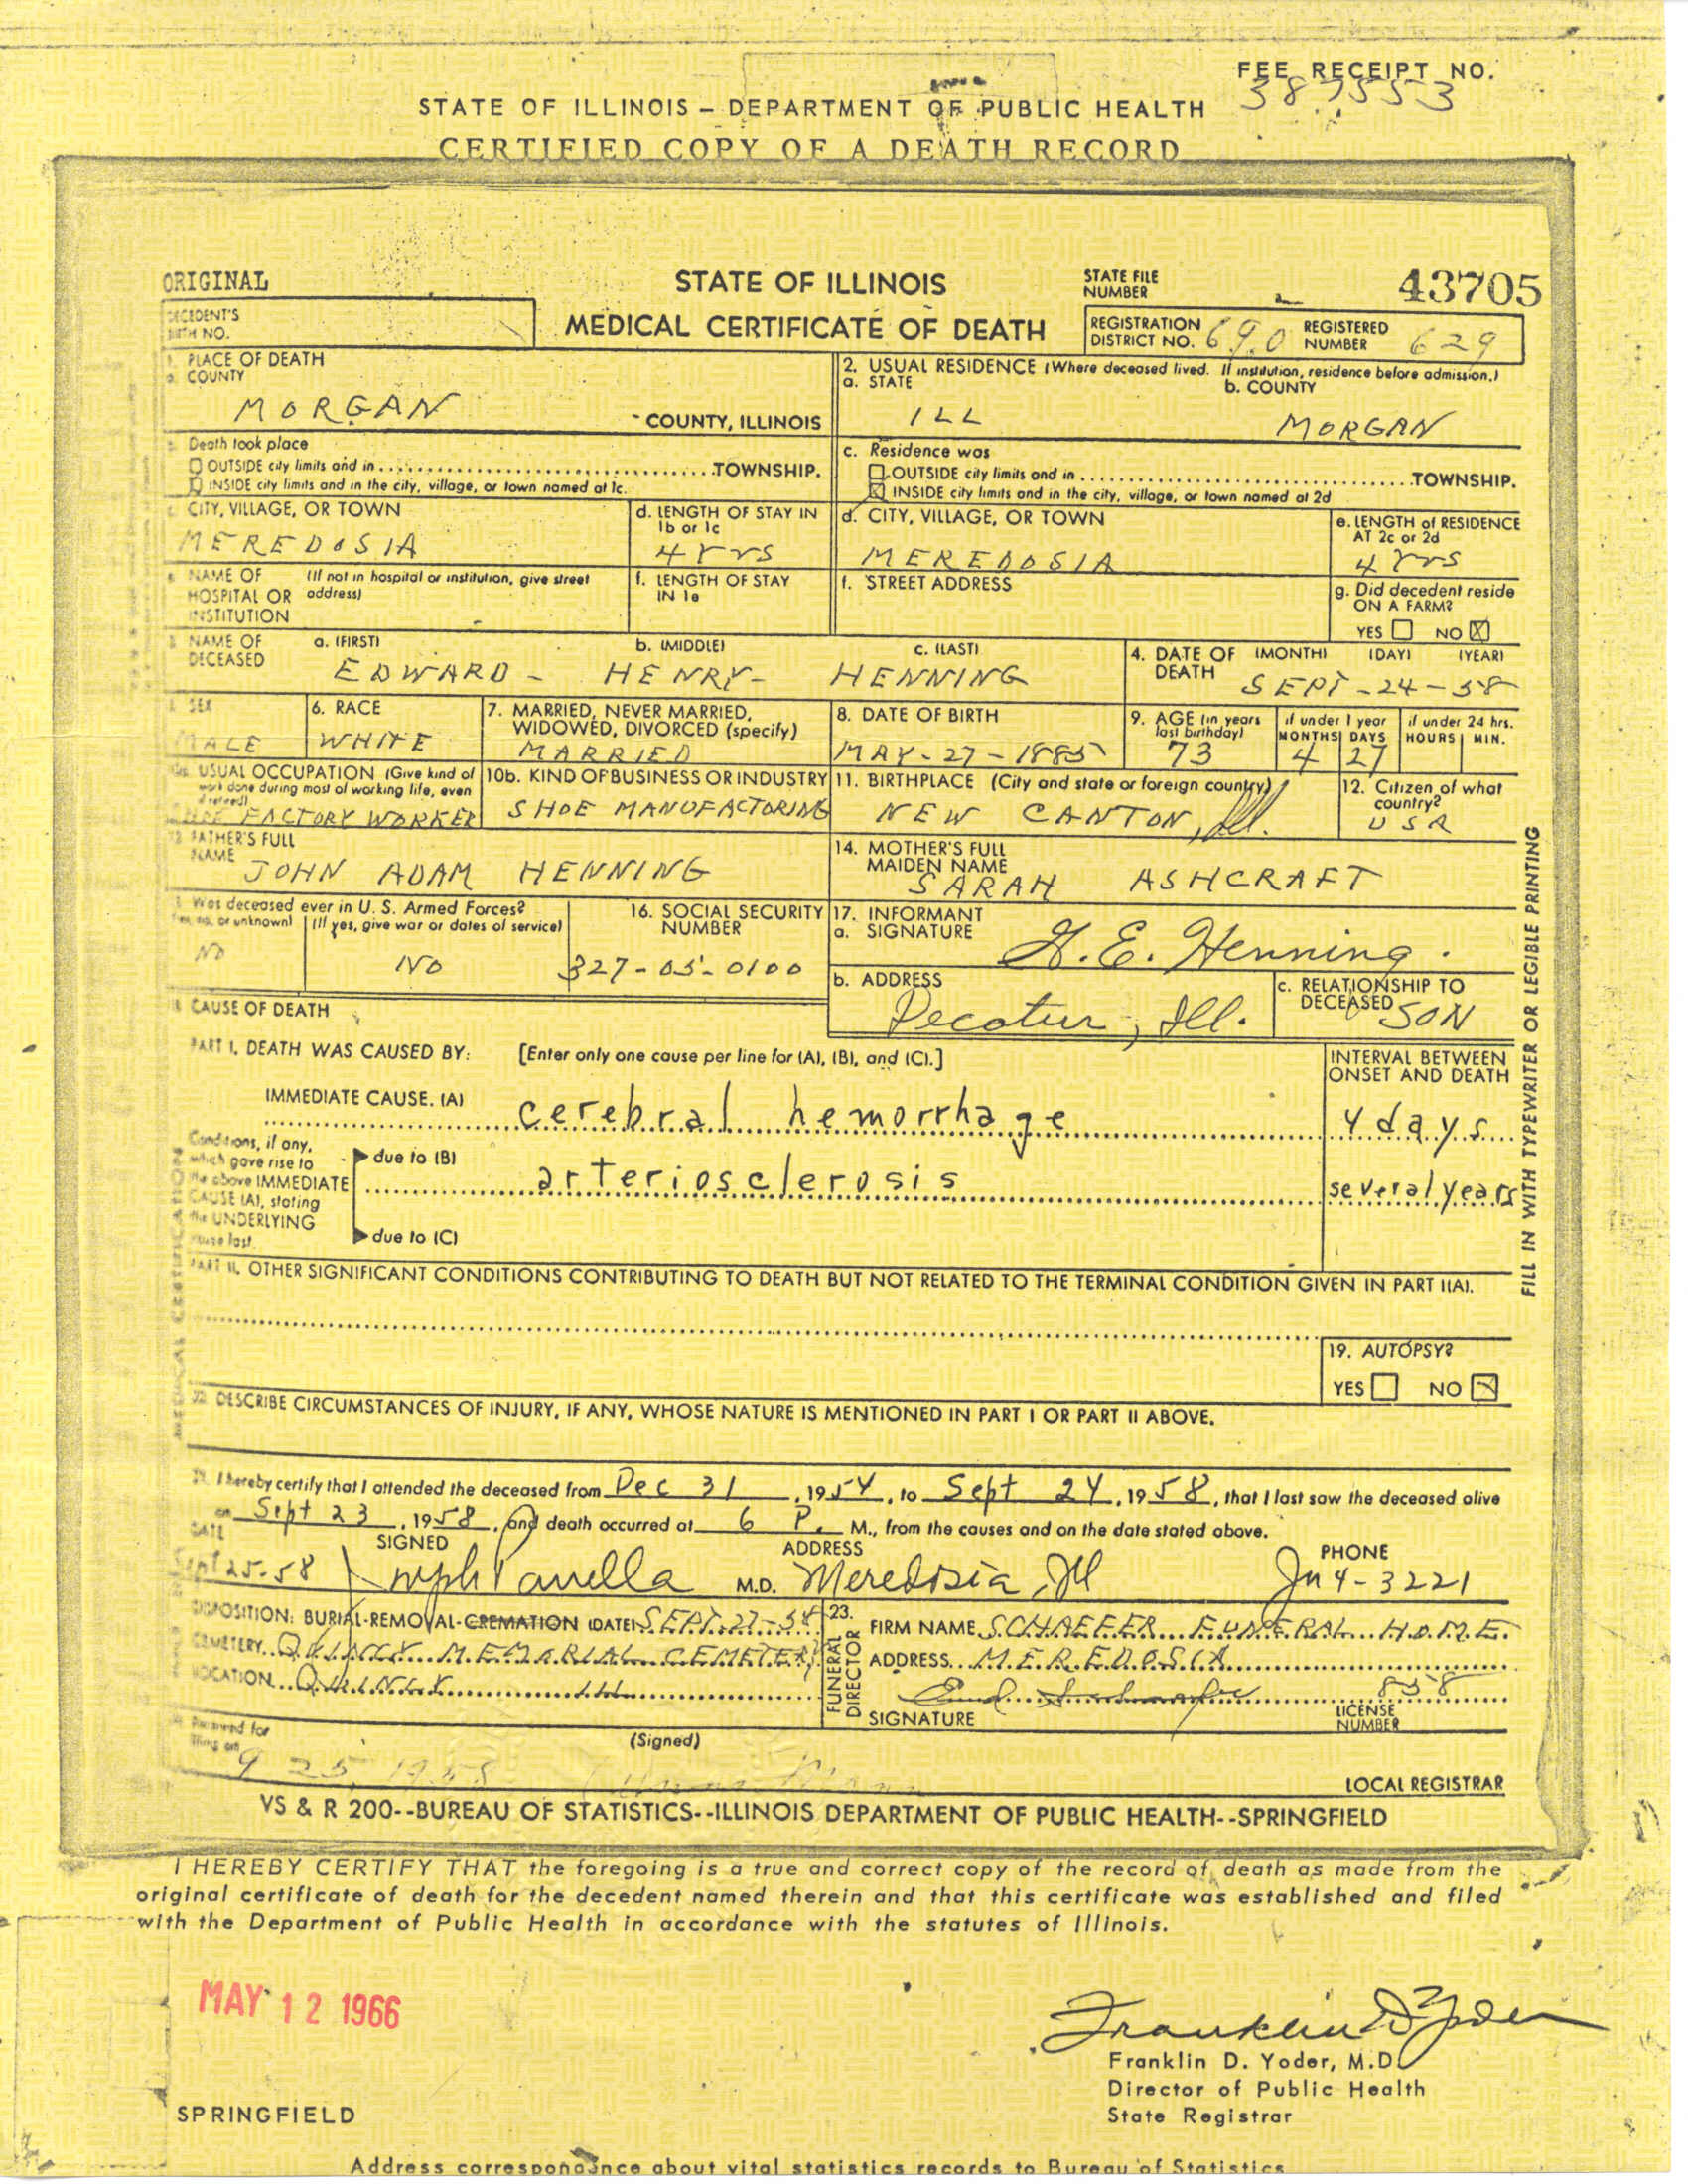 FEE RECEIPT NO.
387553
STATE OF ILLINOIS – DEPARTMENT OF PUBLIC HEALTH
CERTIFIED COPY OF A DEATH RECORD
ORIGINAL
STATE OF ILLINOIS
STATE FILE NUMBER 43705
DECEDENT'S BIRTH NO.
MEDICAL CERTIFICATE OF DEATH
REGISTRATION DISTRICT NO. 690 REGISTERED NUMBER 629
1. PLACE OF DEATH
a. COUNTY
MORGAN - COUNTY, ILLINOIS
2. USUAL RESIDENCE (Where deceased lived. If institution, residence before admission.)
a. STATE b. COUNTY
ILL MORGAN
Death took place
OUTSIDE city limits and in TOWNSHIP.
INSIDE city limits and in the city, village, or town named at 1c.
c. Residence was
OUTSIDE city limits and in TOWNSHIP.
INSIDE city limits and in the city, village, or town named at 2d
c. CITY, VILLAGE, OR TOWN
MEREDOSIA
d. LENGTH OF STAY IN 1b or 1c
4 YrS
d. CITY, VILLAGE, OR TOWN
MEREDOSIA
e. LENGTH of RESIDENCE AT 2c or 2d
4 YrS
e. NAME OF HOSPITAL OR INSTITUTION (If not in hospital or institution, give street address)
f. LENGTH OF STAY IN 1e
f. STREET ADDRESS
g. Did decedent reside ON A FARM?
YES NO X
3. NAME OF DECEASED a. (FIRST) b. (MIDDLE) c. (LAST)
EDWARD - HENRY - HENNING
4. DATE OF DEATH (MONTH) (DAY) (YEAR)
SEPT - 24 - 58
5. SEX
MALE
6. RACE
WHITE
7. MARRIED, NEVER MARRIED, WIDOWED, DIVORCED (specify)
MARRIED
8. DATE OF BIRTH
MAY - 27 - 1885
9. AGE (in years last birthday)
73
if under 1 year MONTHS DAYS
4 27
if under 24 hrs. HOURS MIN.
10a. USUAL OCCUPATION (Give kind of work done during most of working life, even if retired)
FACTORY WORKER
10b. KIND OF BUSINESS OR INDUSTRY
SHOE MANUFACTORING
11. BIRTHPLACE (City and state or foreign country)
NEW CANTON, Ill.
12. Citizen of what country?
USA
13. FATHER'S FULL NAME
JOHN ADAM HENNING
14. MOTHER'S FULL MAIDEN NAME
SARAH ASHCRAFT
Was deceased ever in U. S. Armed Forces?
(Yes, no, or unknown) (If yes, give war or dates of service)
NO NO
16. SOCIAL SECURITY NUMBER
327-05-0100
17. INFORMANT
a. SIGNATURE
H. E. Henning.
b. ADDRESS
Decatur, Ill.
c. RELATIONSHIP TO DECEASED
SON
18. CAUSE OF DEATH
PART I. DEATH WAS CAUSED BY: [Enter only one cause per line for (A), (B), and (C).]
INTERVAL BETWEEN ONSET AND DEATH
IMMEDIATE CAUSE. (A) cerebral hemorrhage 4 days
Conditions, if any, which gave rise to the above IMMEDIATE CAUSE (A), stating the UNDERLYING cause last.
due to (B) arteriosclerosis several years
due to (C)
PART II. OTHER SIGNIFICANT CONDITIONS CONTRIBUTING TO DEATH BUT NOT RELATED TO THE TERMINAL CONDITION GIVEN IN PART I(A).
19. AUTOPSY?
YES NO
DESCRIBE CIRCUMSTANCES OF INJURY, IF ANY, WHOSE NATURE IS MENTIONED IN PART I OR PART II ABOVE.
I hereby certify that I attended the deceased from Dec 31, 1954, to Sept 24, 1958, that I last saw the deceased alive
on Sept 23, 1958, and death occurred at 6 P. M., from the causes and on the date stated above.
DATE SIGNED ADDRESS PHONE
Sept 25-58 Joseph Panella M.D. Meredosia, Ill Ju 4-3221
DISPOSITION: BURIAL-REMOVAL-CREMATION (DATE) SEPT. 27-58
CEMETERY QUINCY MEMORIAL CEMETERY
LOCATION QUINCY Ill
23. FUNERAL DIRECTOR
FIRM NAME SCHAEFER FUNERAL HOME.
ADDRESS MEREDOSIA
SIGNATURE
858
LICENSE NUMBER
Received for filing on
9 25 1958
(Signed)
LOCAL REGISTRAR
FILL IN WITH TYPEWRITER OR LEGIBLE PRINTING
VS & R 200--BUREAU OF STATISTICS--ILLINOIS DEPARTMENT OF PUBLIC HEALTH--SPRINGFIELD
I HEREBY CERTIFY THAT the foregoing is a true and correct copy of the record of death as made from the
original certificate of death for the decedent named therein and that this certificate was established and filed
with the Department of Public Health in accordance with the statutes of Illinois.
MAY 12 1966
Franklin D Yoder
Franklin D. Yoder, M.D.
Director of Public Health
SPRINGFIELD
State Registrar
Address correspondence about vital statistics records to Bureau of Statistics